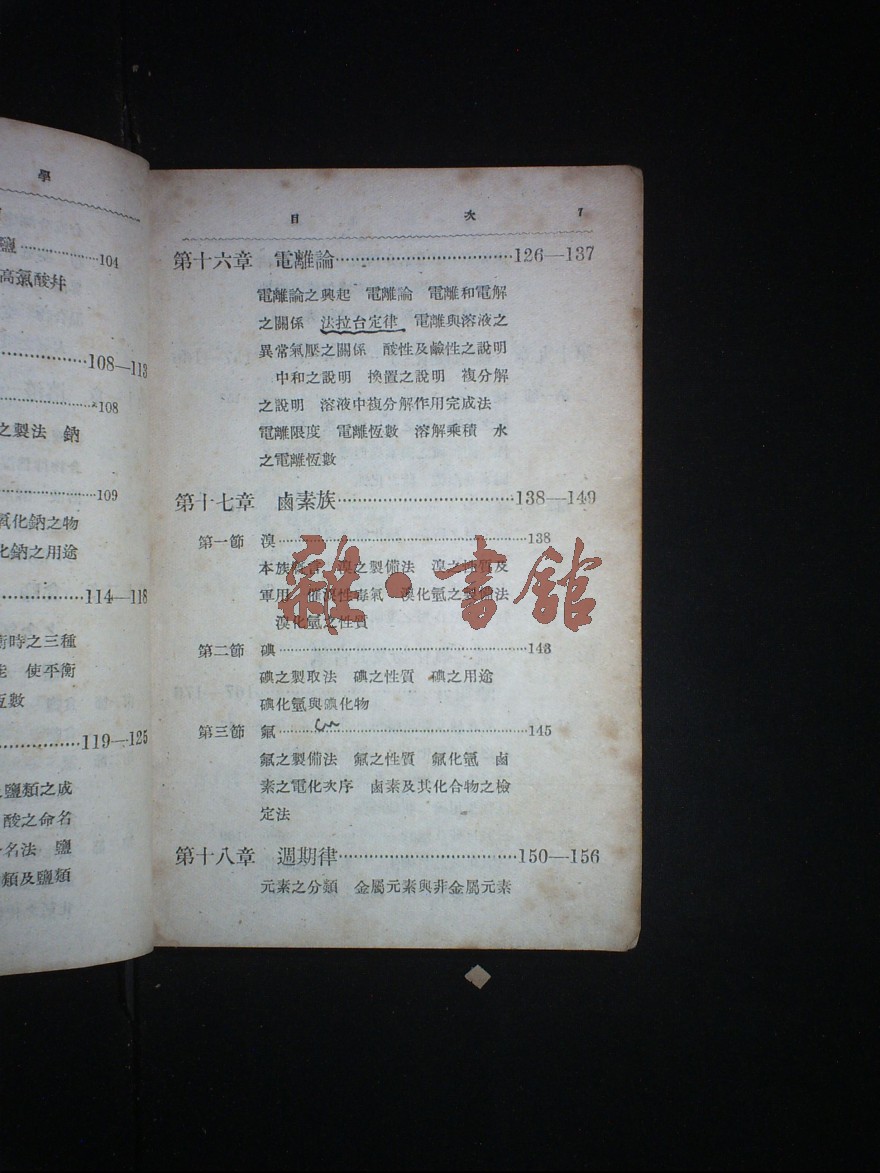 學
鹽……104
高氯酸
108—113
108
之製法 鈉
109
氧化鈉之物
化鈉之用途
114—118
衡時之三種
使平衡
恆數
119—125
鹽類之成
酸之命名
名法 鹽
類及鹽類
目 次 7
第十六章 電離論……126—137
電離論之興起 電離論 電離和電解
之關係 法拉台定律 電離與溶液之
異常氣壓之關係 酸性及鹼性之說明
中和之說明 換置之說明 複分解
之說明 溶液中複分解作用完成法
電離限度 電離恆數 溶解乘積 水
之電離恆數
第十七章 鹵素族……138—149
第一節 溴……138
本族 溴之製備法 溴之性質及
軍用 催淚性毒氣 溴化氫之製備法
溴化氫之性質
第二節 碘……143
碘之製取法 碘之性質 碘之用途
碘化氫與碘化物
第三節 氟……145
氟之製備法 氟之性質 氟化氫 鹵
素之電化次序 鹵素及其化合物之檢
定法
第十八章 週期律……150—156
元素之分類 金屬元素與非金屬元素
雜·書館